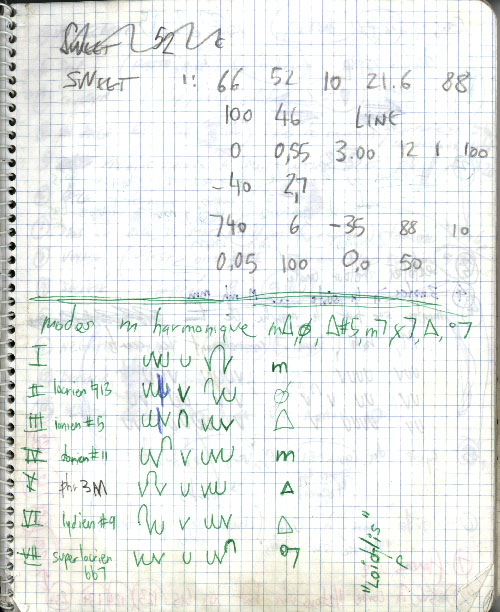 SWEET 52
SWEET 1: 66 52 10 21.6 88
100 46 LINE
0 0,55 3.00 12 1 100
-40 2,7
740 6 -35 88 10
0,05 100 0,0 50
modes m harmonique mΔ, ø, Δ#5, m7, 7, Δ, °7
I m
II locrien ♮13 ø
III ionien #5 Δ
IV dorien #11 m
V phr 3M Δ
VI lydien #9 Δ
VII superlocrien bb7 °7
"Loidlis"